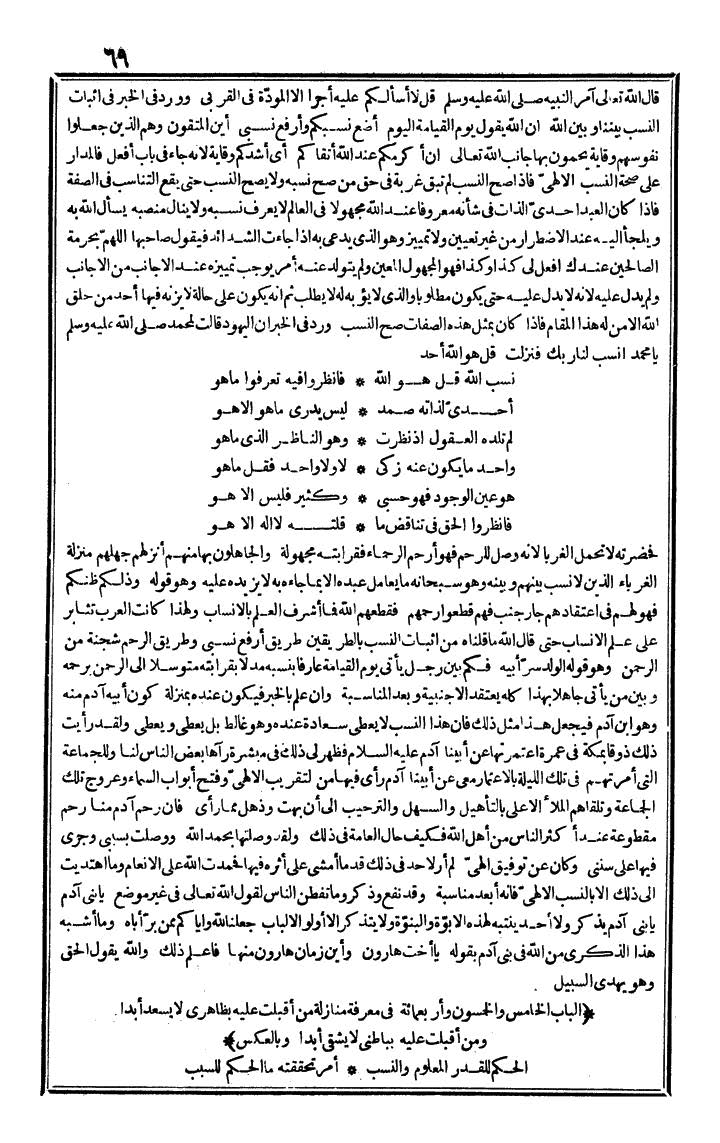 ٦٩
قال الله تعالى آمر النبيه صلى الله عليه وسلم قل لا أسألكم عليه أجرا الا المودّة فى القربى وورد فى الخبر فى اثبات
النسب بيننا وبين الله ان الله يقول يوم القيامة اليوم أضع نسبكم وأرفع نسبى أين المتقون وهم الذين جعلوا
نفوسهم وقاية يحمون بها جانب الله تعالى ان أكرمكم عند الله أتقاكم أى أشدكم وقاية لانه جاء فى باب أفعل فالمدار
على صحة النسب الالهىّ فاذا صح النسب لم تبق غربة فى حق من صح نسبه ولا يصح النسب حتى يقع التناسب فى الصفة
فاذا كان العبد احدىّ الذات فى شأنه معروفا عند الله مجهولا فى العالم لا يعرف نسبه ولا ينال منصبه يسأل الله به
ويلجأ اليه عند الاضطرار من غير تعيين ولا تمييز وهو الذى يدعى به اذا جاءت الشدائد فيقول صاحبها اللهمّ بحرمة
الصالحين عندك افعل لى كذا وكذا فهو المجهول المعين ولم يتولد عنه أمر يوجب تمييزه عند الاجانب من الاجانب
ولم يدل عليه لانه لا يدل عليه حتى يكون مطلوبا والذى لا يؤبه له لا يطلب ثم انه يكون على حالة لا يزنه فيها أحد من خلق
الله الا من له هذا المقام فاذا كان بمثل هذه الصفات صح النسب ورد فى الخبر ان اليهود قالت لمحمد صلى الله عليه وسلم
يا محمد انسب لنا ربك فنزلت قل هو الله أحد
نسب الله قل هو الله * فانظروا فيه تعرفوا ما هو
أحدىّ لذاته صمد * ليس يدرى ما هو الا هو
لم تلده العقول اذ نظرت * وهو الناظر الذى ما هو
واحد ما يكون عنه زكى * لا ولا واحد فقل ما هو
هو عين الوجود فهو حسبى * وكثير فليس الا هو
فانظروا الحق فى تناقض ما * قلته لا اله الا هو
فحضرته لا تحمل الغربا لانه وصل للرحم فهو أرحم الرحماء فقرابته مجهولة والجاهلون بها منهم أنزلهم جهلهم منزلة
الغرباء الذين لا نسب بينهم وبينه وهو سبحانه ما يعامل عبده الا بما جاءه به لا يزيده عليه وهو قوله وذلكم ظنكم
فهو لهم فى اعتقادهم جار جنب فهم قطعوا رحمهم فقطعهم الله فما أشرف العلم بالانساب ولهذا كانت العرب تثابر
على علم الانساب حتى قال الله ما قلناه من اثبات النسب بالطريقين طريق أرفع نسبى وطريق الرحم شجنة من
الرحمن وهو قوله الولد سرّ أبيه فكم بين رجل يأتى يوم القيامة عارفا بنسبه مدلا بقرابته متوسلا الى الرحمن برحمه
وبين من يأتى جاهلا بهذا كله يعتقد الاجنبية وبعد المناسبة وان علم بالخبر فيكون عنده بمنزلة كون أبيه آدم منه
وهو ابن آدم فيجعل هذا مثل ذلك فان هذا النسب لا يعطى سعادة عنده وهو غالط بل يعطى ويعطى ولقد رأيت
ذلك ذوقا بمكة فى عمرة اعتمرتها عن أبينا آدم عليه السلام فظهر لى ذلك فى مبشرة رآها بعض الناس لنا وللجماعة
التى أمرتهم فى تلك الليلة بالاعتمار معى عن أبينا آدم رأى فيها من التقريب الالهىّ وفتح أبواب السماء وعروج تلك
الجماعة وتلقاهم الملأ الاعلى بالتأهيل والسهل والترحيب الى أن بهت وذهل مما رأى فان رحم آدم منا رحم
مقطوعة عند أكثر الناس من أهل الله فكيف حال العامة فى ذلك ولقد وصلتها بحمد الله ووصلت بسببى وجرى
فيها على سننى وكان عن توفيق الهىّ لم أر لاحد فى ذلك قدما أمشى على أثره فيها فحمدت الله على الانعام وما اهتديت
الى ذلك الا بالنسب الالهىّ فانه أبعد مناسبة وقد نفع وذكر وما تفطن الناس لقول الله تعالى فى غير موضع يا بنى آدم
يا بنى آدم يذكر ولا أحد ينتبه لهذه الابوّة والبنوّة ولا يتذكر الا أولو الالباب جعلنا الله واياكم ممن برّ أباه وما أشبه
هذا الذكرى من الله فى بنى آدم بقوله يا أخت هارون وأين زمان هارون منها فاعلم ذلك والله يقول الحق
وهو يهدى السبيل
﴿الباب الخامس والخمسون وأربعمائة فى معرفة منازلة من أقبلت عليه بظاهرى لا يسعد أبدا
ومن أقبلت عليه بباطنى لا يشقى أبدا وبالعكس﴾
الحكم للقدر المعلوم والنسب * أمر تحققته ما الحكم للسبب